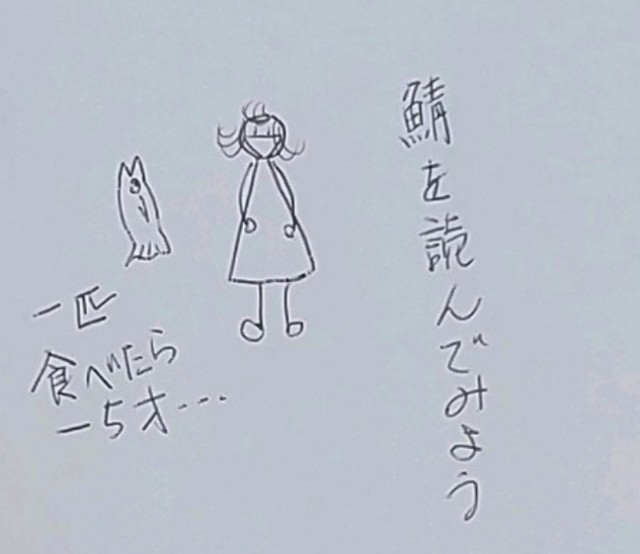 鯖を読んでみよう
一匹
食べたら
一5才...